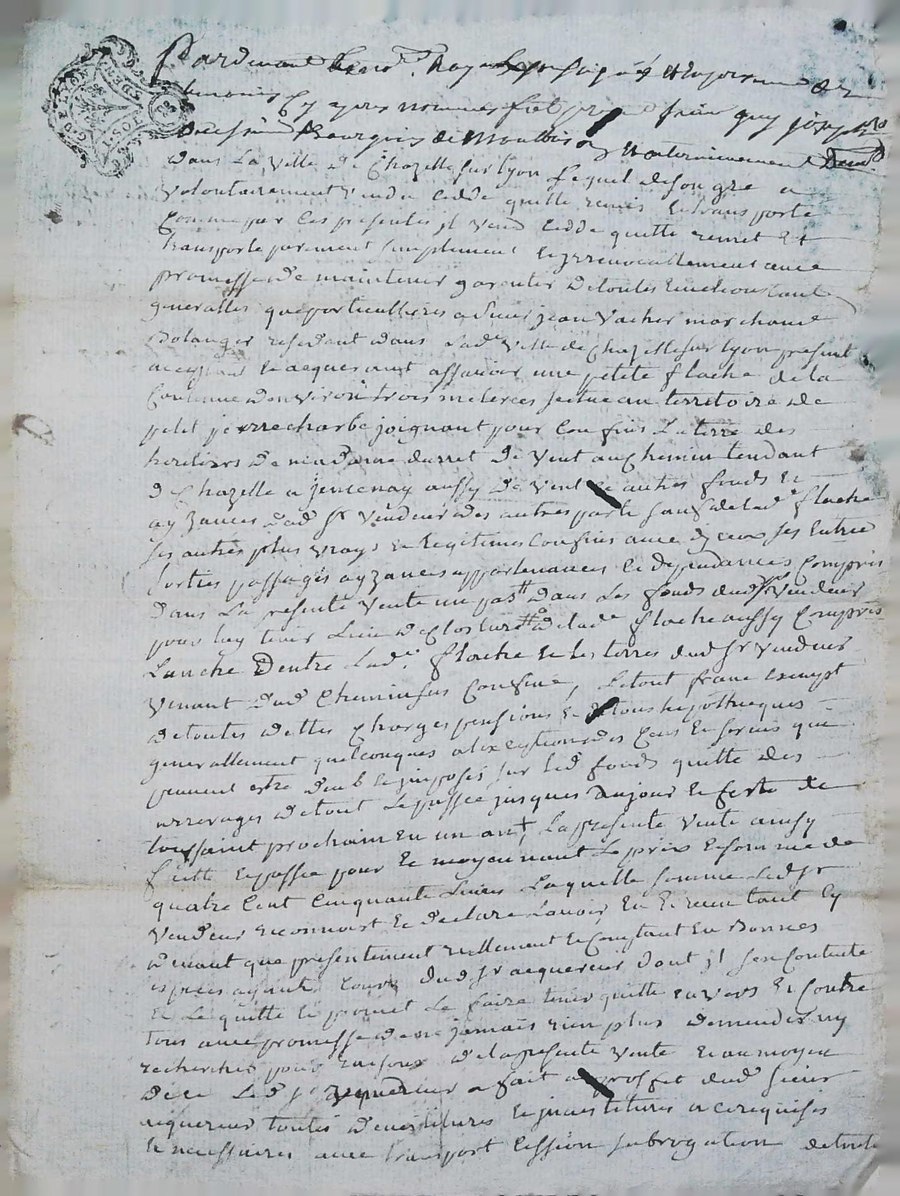 Pardevant le no.re Royal soussigné et en presence des
temoins cy apres nommes fut present sieur guy joseph
bourgois de Montbrison
dans la ville de Chazelle sur lyon lequel de son gre a
volontairement vendu cedde quitte remis et transporte
comme par ces presentes il vend cedde quitte remet et
transporte purement simplement et irrevocablement avec
promesse de maintenir garentir de toutes evictions tant
generalles que particullieres a sieur jean vacher marchand
Bolanger residant dans lad. ville de Chazelle sur lyon present
acceptant et acquerant assavoir une petite flache de la
contenue d'environ trois meterées scitue au territoire de
petit joignant pour confins la terre des
heretiers de madame durret de vent au chemin tendant
de Chazelle a aussy de vent et autres fonds et
ayzances dud. sr vendeur des autres parts sauf de lad. flache
ses autres plus vrays et legitimes confins avec d'yceux ses entree
sorties passages ayzances appartenances et dependances compris
dans la presente vente un dans les fonds dud. sr vendeur
pour luy tenir lieu de closture de lad. flache aussy compris
d'entre lad. flache et les terres dud. sr vendeur
venant dud. chemin sus confiné, le tout franc exempt
de toutes dettes charges pensions et de tous hypotheques
generallement quelconques a l'exeption des cens et servis que
peuvent estre deub et imposés sur led. fonds quitte des
arrerages de tout le passé jusques aujour et feste de
toussaint prochain en un an, la presente vente aussy
faitte et passée pour et moyennant le prix et somme de
quatre cent cinquante livres laquelle somme led. sr
vendeur reconnoist et declare l'avoir eu et receu tant cy
devant que presentement reellement et comptant en bonnes
especes ayant cours dud. sr acquereur dont il s'en contente
et le quitte et promet le faire tenir quitte envers et contre
tous avec promesse de ne jamais rien plus demander ny
rechercher pour raison de la presente vente et au moyen
de ce led. sr vendeur a fait au proffit dud. sieur
acquereur toutes devetitures et investitures a ce requises
et necessaires avec transport cession subrogation de tous